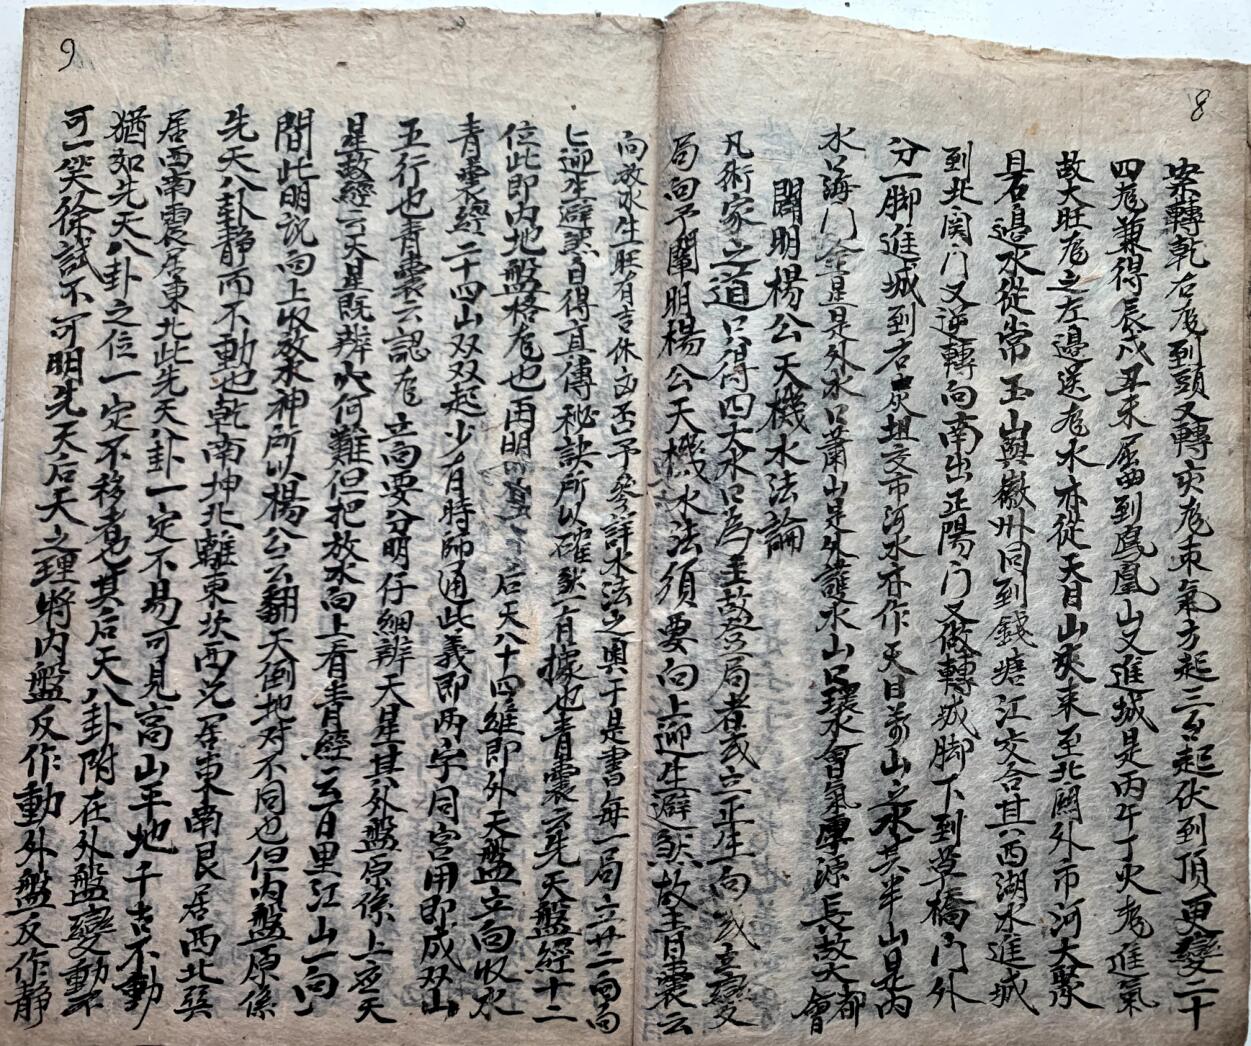 8
案轉乾右尨到頭又轉亥尨束氣方起三台起伏到頂更變二十
四尨兼得辰戌丑未屈曲到鳳凰山又進城是丙午丁火尨進氣
故大旺尨之左邊送尨水亦從天目山夾來至北關外市河大聚
其右邉水從常玉山與徽州同到錢塘江交合其西湖水進城
到北関门又逆轉向南出正陽门又做轉城脚下到草橋门外
分一脚進城到石炭坦交市河水亦作天目前山之水共半山是内
水口海门全是是外水口蕭山是外護水山口環水會氣厚源長故大都會
闢明楊公天機水法論
凡術家之道只得四大水口為主故登局者或立正生向或立變
局向予闡明楊公天機水法須要向上迎生避煞故青囊云
9
向放水生旺有吉休囚否予參詳水法之奥于是書每一局立廿二向向
上迎生避煞自得真傳秘訣所以確然有據也青囊云先天盤經十二
位此即内地盤格尨也再明後天八十四維即外天盤立向收水
青囊經二十四山双双起少有時師通此義即两字同宫用即成双山
五行也青囊云認尨立向要分明仔細辨天星其外盤原係上應天
星故經云天星既辨穴何難但把放水向上看青經云百里江山一向
間此明説向上收放水神所以楊公云翻天倒地对不同也但内盤原係
先天八卦静而不動也乾南坤北離東坎西兑居東南艮居西北巽
居西南震居東北此先天八卦一定不易可見高山平地千古不動
猶如先天八卦之位一定不移者也其后天八卦附在外盤變動不
可一笑徐試不可明先天后天之理將内盤反作動外盤反作静